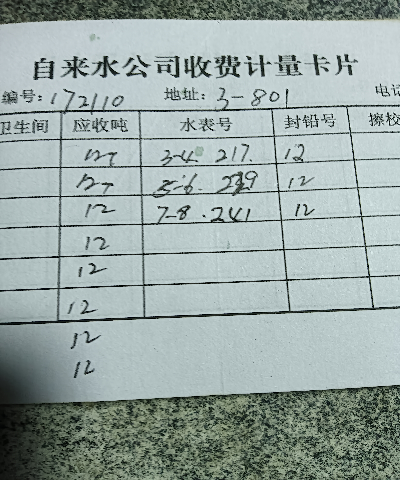 自来水公司收费计量卡片
编号:172110 地址:3-801 电话
卫生间 应收吨 水表号 封铅号 擦校
12T 3-4. 217. 12
12T 5-6. 229 12
12 7-8.241 12
12
12
12
12
12